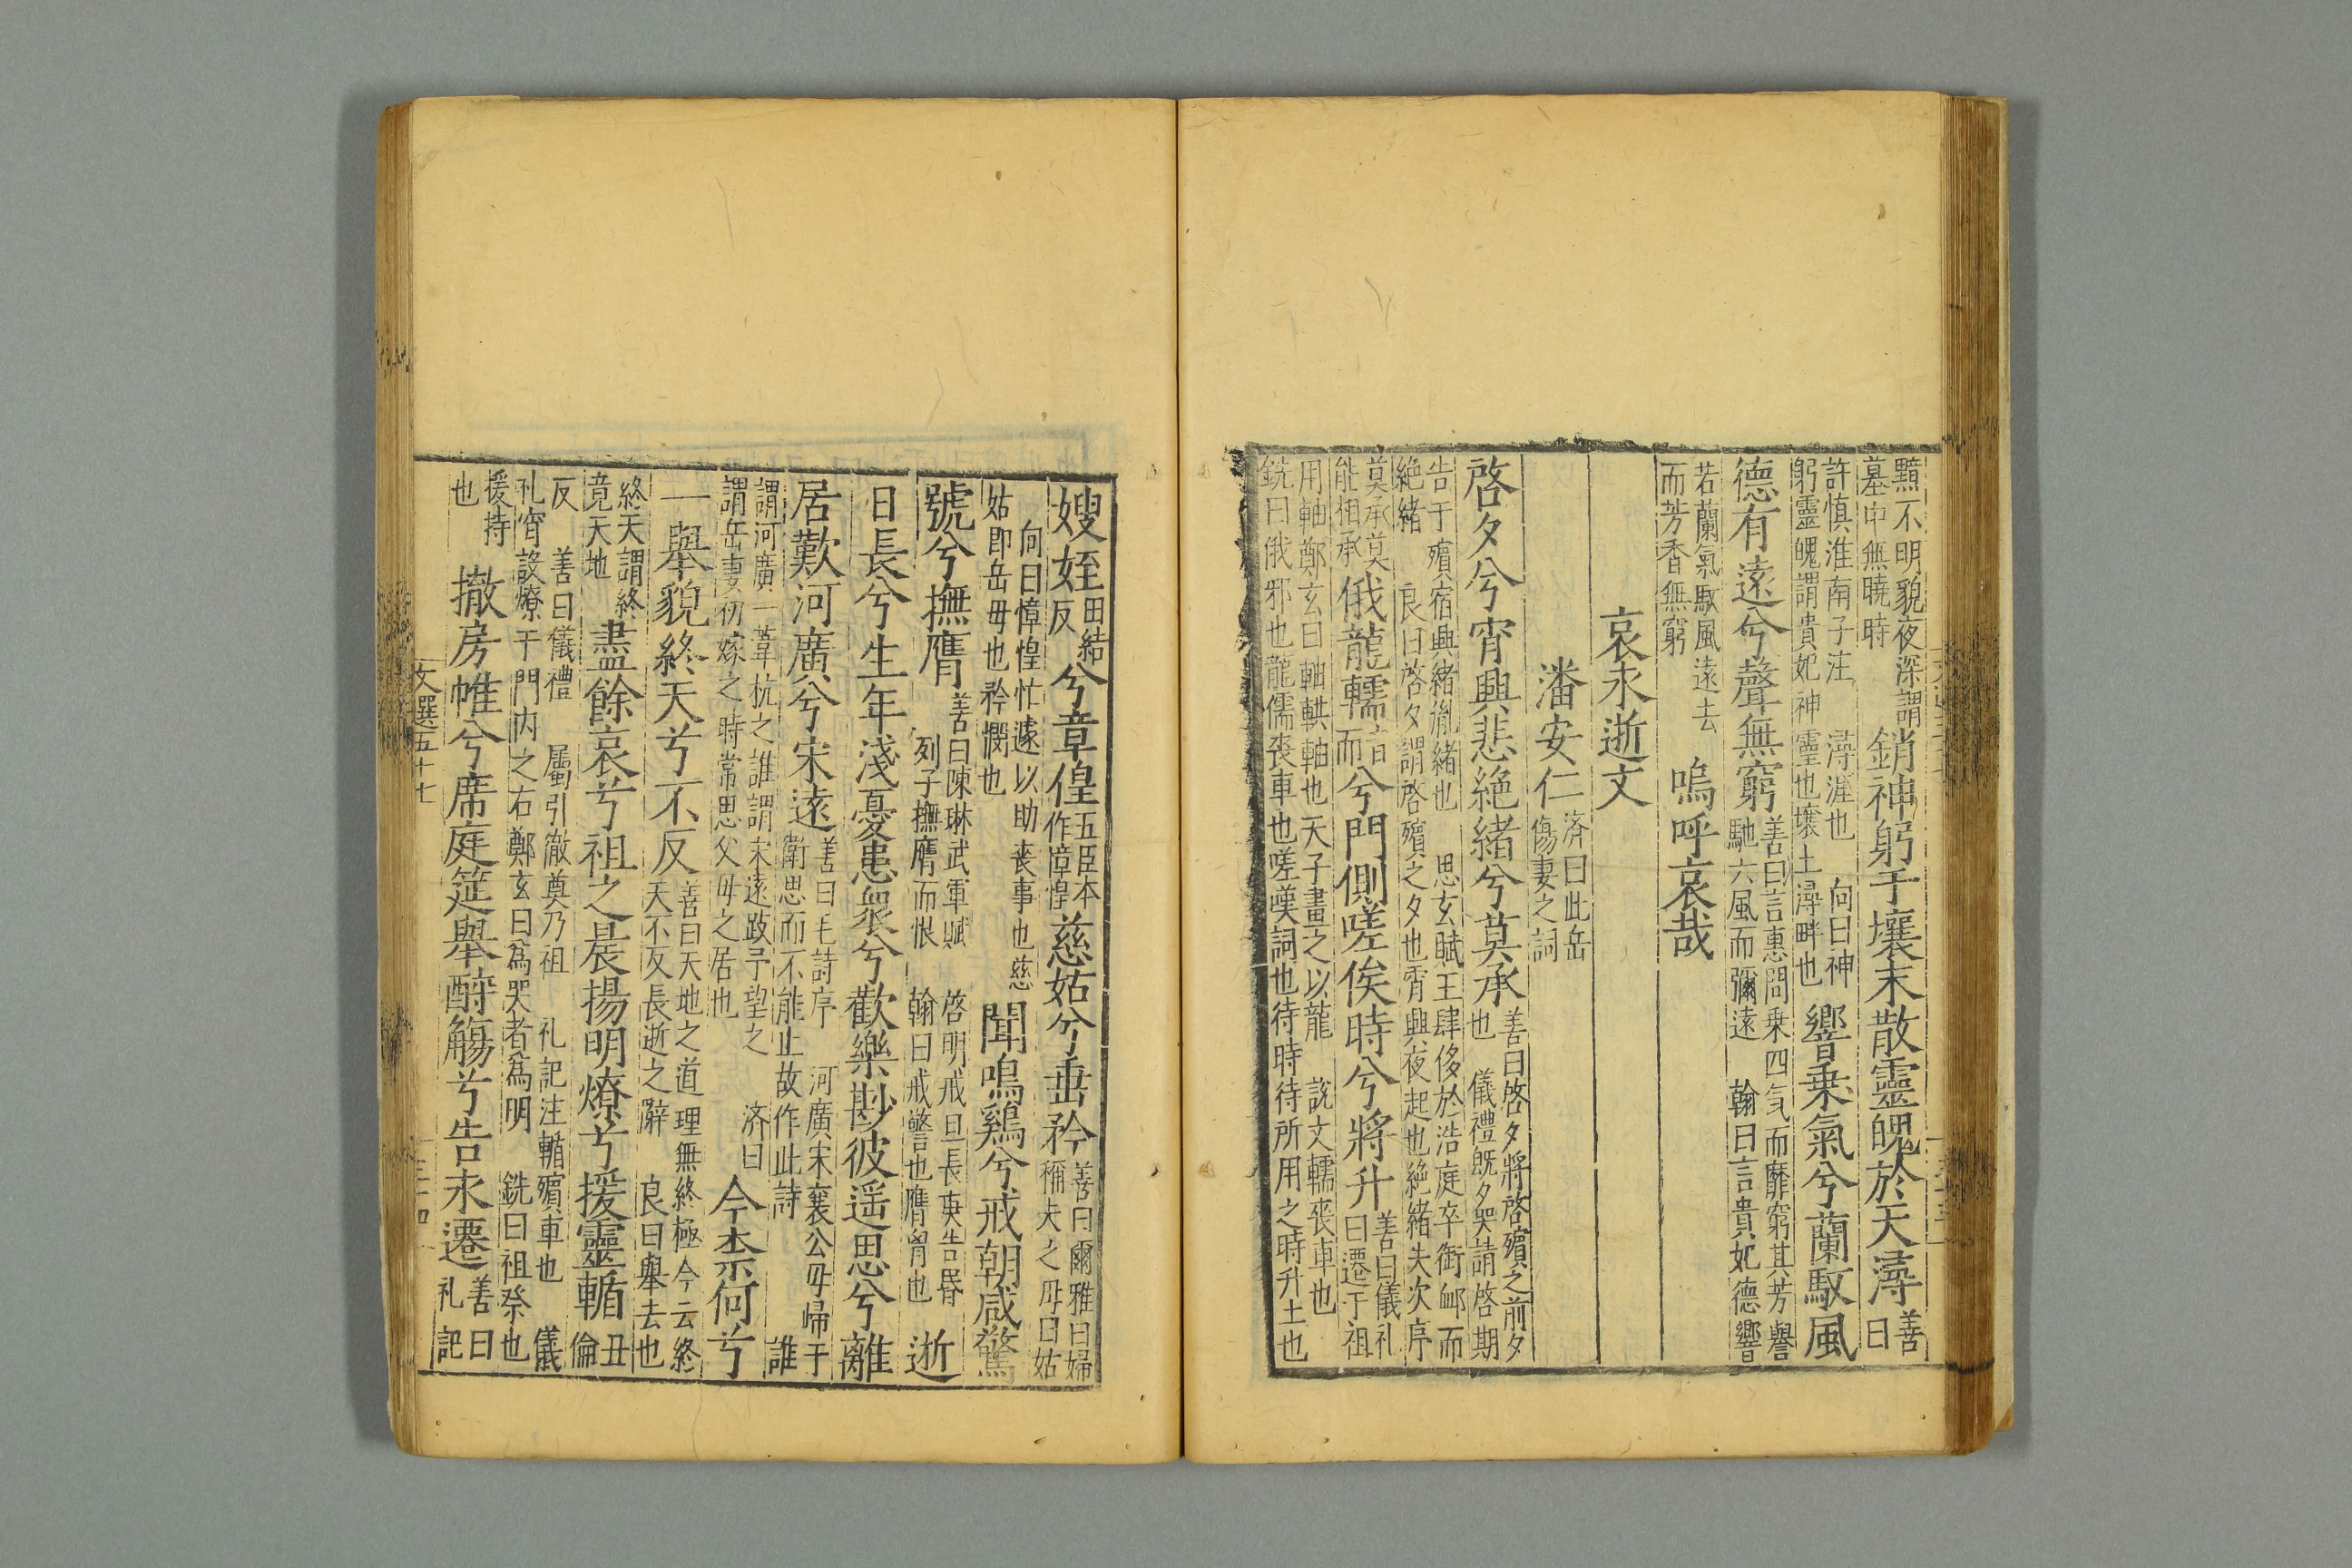 黯不明貌夜深謂
墓中無曉時
銷神躬于壤末散靈魄於天潯
善
曰
許慎淮南子注 潯涯也 向曰神
躬靈魄謂貴妃神靈也壤土潯畔也
響乗氣兮蘭馭風
德有遠兮聲無窮
善曰言惠問乗四気而靡窮其芳譽
馳六風而彌遠 翰曰言貴妃德響
若蘭氣馭風遠去
而芳香無窮
嗚呼哀哉
哀永逝文
潘安仁
済曰此岳
傷妻之詞
啓夕兮宵興悲絶緒兮莫承
善曰啓夕將啓殯之前夕
也 儀禮既夕哭請啓期
告于殯宿興緒胤緒也 思玄賦王肆侈於浩庭卒銜䘏而
絶緒 良曰啓夕謂啓殯之夕也宵興夜起也絶緒失次序
莫承莫
能相承
俄龍轜
音
而
兮門側嗟俟時兮將升
善曰儀礼
曰遷于祖
用軸鄭玄曰軸輁軸也天子畫之以龍 説文轜喪車也
銑曰俄邪也龍儒喪車也嗟嘆詞也待時待所用之時升土也
嫂姪
田結
反
兮章偟
五臣本
作慞惶
慈姑兮垂矜
善曰爾雅曰婦
稱夫之母曰姑
向曰慞惶忙遽以助喪事也慈
姑即岳毋也矜憫也
聞鳴鷄兮戒朝咸驚
號兮撫膺
善曰陳琳武軍賦 啓明戒旦長庚告昏
列子撫膺而恨 翰曰戒警也膺胷也
逝
日長兮生年淺憂患衆兮歡樂尠彼遥思兮離
居歎河廣兮宋遠
善曰毛詩序 河廣宋襄公母歸于
衛思而不能止故作此詩 誰
謂河廣一葦杭之誰謂宋遠跂予望之 済曰
謂岳妻初嫁之時常思父母之居也
今柰何兮
一舉邈終天兮不反
善曰天地之道理無終極今云終
天不反長逝之辭 良曰舉去也
終天謂終
竟天地
盡餘哀兮祖之晨揚明燎兮援靈輴
丑
倫
反 善曰儀禮 屬引徹奠乃祖 礼記注輴殯車也 儀
礼宵設燎于門内之右鄭玄曰為哭者為明 銑曰祖祭也
援持
也
撤房帷兮席庭筵舉酹觴兮告永遷
善曰
礼記
文選五十七